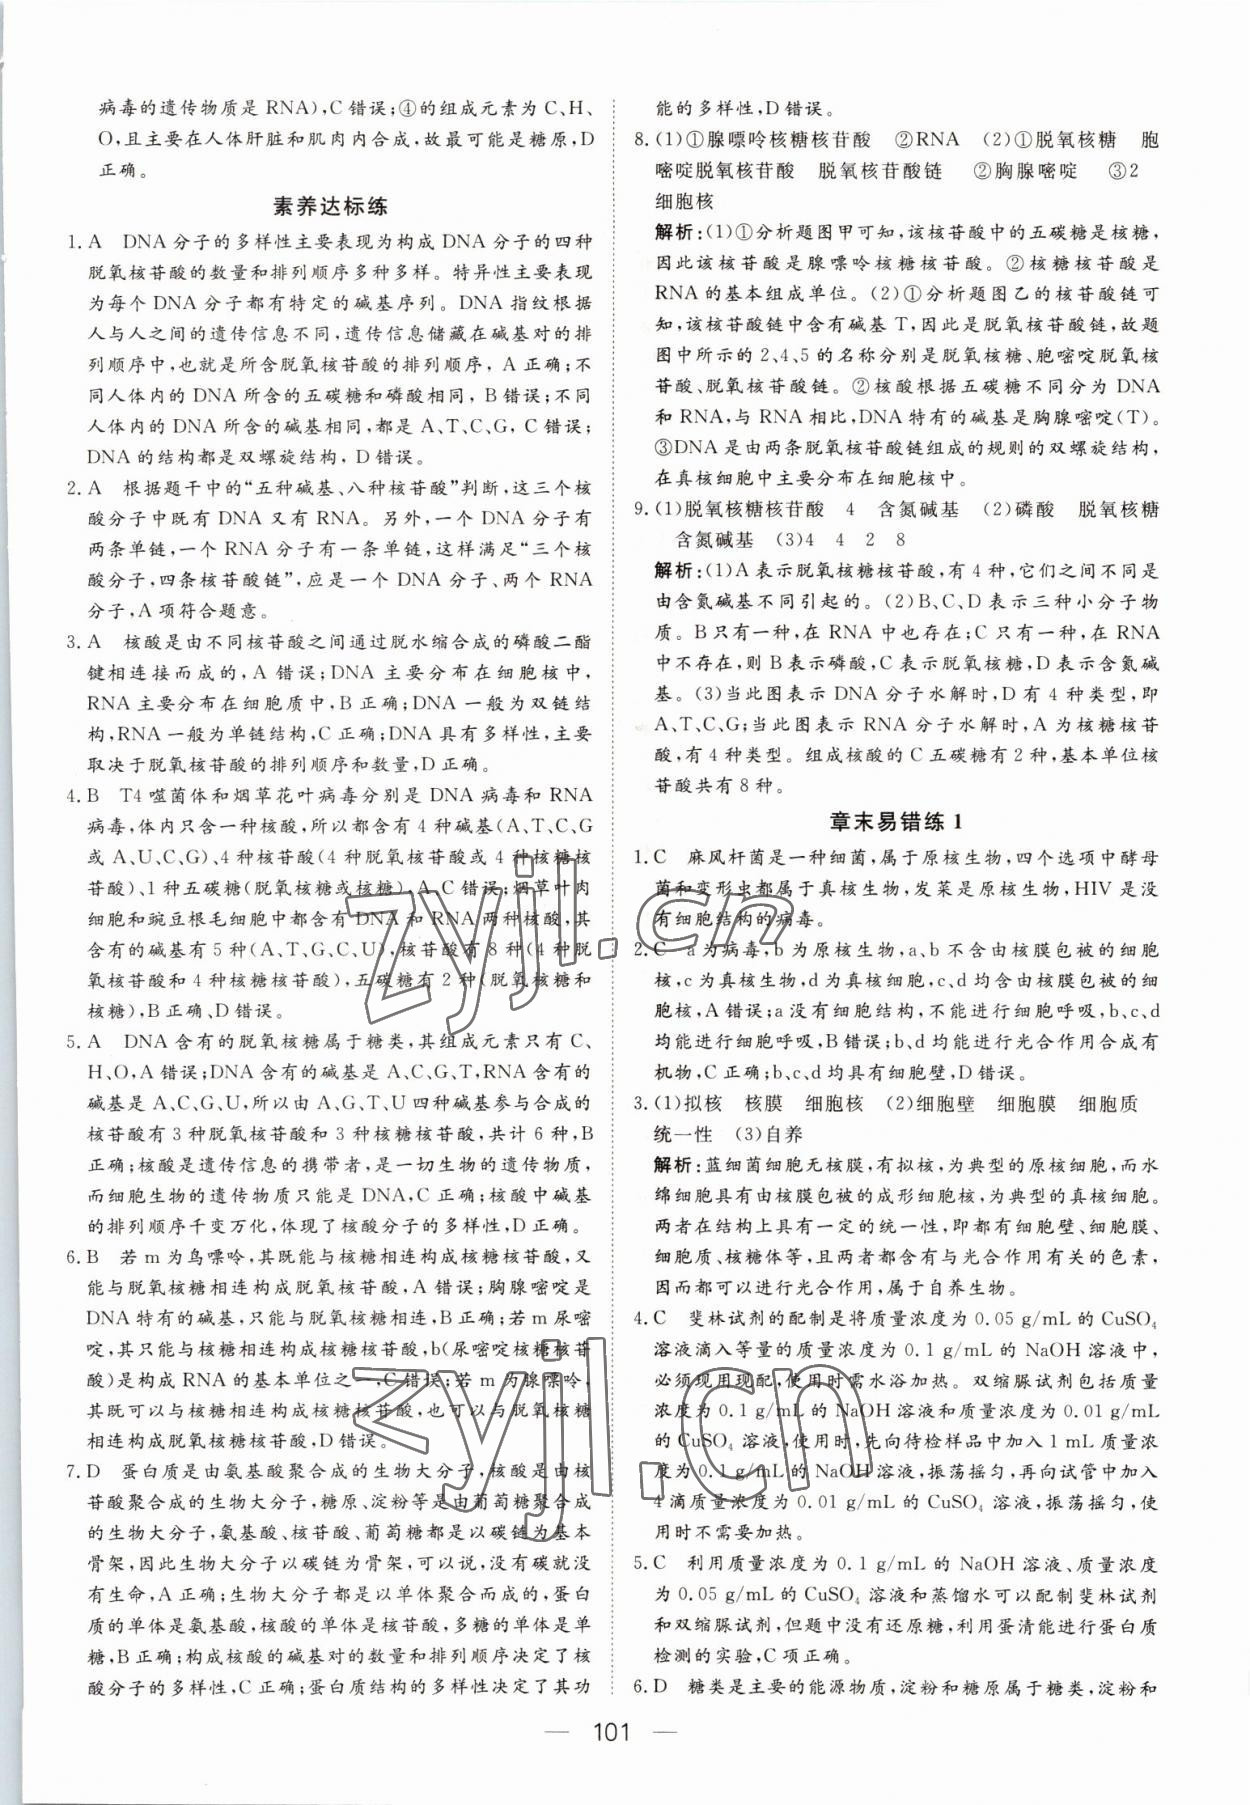 病毒的遗传物质是 RNA),C 错误;④的组成元素为 C、H、
O,且主要在人体肝脏和肌肉内合成,故最可能是糖原,D
正确。
素养达标练
1. A DNA 分子的多样性主要表现为构成 DNA 分子的四种
脱氧核苷酸的数量和排列顺序多种多样。特异性主要表现
为每个 DNA 分子都有特定的碱基序列。DNA 指纹根据
人与人之间的遗传信息不同,遗传信息储藏在碱基对的排
列顺序中,也就是所含脱氧核苷酸的排列顺序,A 正确;不
同人体内的 DNA 所含的五碳糖和磷酸相同,B错误;不同
人体内的 DNA 所含的碱基相同,都是 A、T、C、G,C 错误;
DNA 的结构都是双螺旋结构,D错误。
2. A 根据题干中的“五种碱基、八种核苷酸”判断,这三个核
酸分子中既有 DNA 又有 RNA。另外,一个 DNA 分子有
两条单链,一个 RNA 分子有一条单链,这样满足“三个核
酸分子,四条核苷酸链”,应是一个 DNA 分子、两个 RNA
分子,A 项符合题意。
3. A 核酸是由不同核苷酸之间通过脱水缩合成的磷酸二酯
键相连接而成的,A 错误;DNA 主要分布在细胞核中,
RNA 主要分布在细胞质中,B正确;DNA 一般为双链结
构,RNA 一般为单链结构,C正确;DNA 具有多样性,主要
取决于脱氧核苷酸的排列顺序和数量,D正确。
4. B T4 噬菌体和烟草花叶病毒分别是 DNA 病毒和 RNA
病毒,体内只含一种核酸,所以都含有 4 种碱基(A、T、C、G
或 A、U、C、G)、4种核苷酸(4 种脱氧核苷酸或 4 种核糖核
苷酸)、1 种五碳糖(脱氧核糖或核糖),A、C 错误;烟草叶肉
细胞和豌豆根毛细胞中都含有 DNA 和 RNA 两种核酸,其
含有的碱基有 5 种(A、T、G、C、U),核苷酸有 8 种(4 种脱
氧核苷酸和 4 种核糖核苷酸),五碳糖有 2 种(脱氧核糖和
核糖),B正确、D错误。
5. A DNA 含有的脱氧核糖属于糖类,其组成元素只有 C、
H、O,A 错误;DNA 含有的碱基是 A、C、G、T,RNA 含有的
碱基是 A、C、G、U,所以由 A、G、T、U 四种碱基参与合成的
核苷酸有 3 种脱氧核苷酸和 3 种核糖核苷酸,共计 6 种,B
正确;核酸是遗传信息的携带者,是一切生物的遗传物质,
而细胞生物的遗传物质只能是 DNA,C正确;核酸中碱基
的排列顺序千变万化,体现了核酸分子的多样性,D正确。
6. B 若 m 为鸟嘌呤,其既能与核糖相连构成核糖核苷酸,又
能与脱氧核糖相连构成脱氧核苷酸,A 错误;胸腺嘧啶是
DNA 特有的碱基,只能与脱氧核糖相连,B正确;若 m 尿嘧
啶,其只能与核糖相连构成核糖核苷酸,b(尿嘧啶核糖核苷
酸)是构成 RNA 的基本单位之一,C错误;若 m 为腺嘌呤,
其既可以与核糖相连构成核糖核苷酸,也可以与脱氧核糖
相连构成脱氧核糖核苷酸,D错误。
7. D 蛋白质是由氨基酸聚合成的生物大分子,核酸是由核
苷酸聚合成的生物大分子,糖原、淀粉等是由葡萄糖聚合成
的生物大分子,氨基酸、核苷酸、葡萄糖都是以碳链为基本
骨架,因此生物大分子以碳链为骨架,可以说,没有碳就没
有生命,A 正确;生物大分子都是以单体聚合而成的,蛋白
质的单体是氨基酸,核酸的单体是核苷酸,多糖的单体是单
糖,B正确;构成核酸的碱基对的数量和排列顺序决定了核
酸分子的多样性,C正确;蛋白质结构的多样性决定了其功
能的多样性,D错误。
8. (1)①腺嘌呤核糖核苷酸 ②RNA (2)①脱氧核糖 胞
嘧啶脱氧核苷酸 脱氧核苷酸链 ②胸腺嘧啶 ③2
细胞核
解析:(1)①分析题图甲可知,该核苷酸中的五碳糖是核糖,
因此该核苷酸是腺嘌呤核糖核苷酸。②核糖核苷酸是
RNA 的基本组成单位。(2)①分析题图乙的核苷酸链可
知,该核苷酸链中含有碱基 T,因此是脱氧核苷酸链,故题
图中所示的 2、4、5 的名称分别是脱氧核糖、胞嘧啶脱氧核
苷酸、脱氧核苷酸链。②核酸根据五碳糖不同分为 DNA
和 RNA,与 RNA 相比,DNA 特有的碱基是胸腺嘧啶(T)。
③DNA 是由两条脱氧核苷酸链组成的规则的双螺旋结构,
在真核细胞中主要分布在细胞核中。
9. (1)脱氧核糖核苷酸 4 含氮碱基 (2)磷酸 脱氧核糖
含氮碱基 (3)4 4 2 8
解析:(1)A 表示脱氧核糖核苷酸,有 4 种,它们之间不同是
由含氮碱基不同引起的。(2)B、C、D 表示三种小分子物
质。B只有一种,在 RNA 中也存在;C只有一种,在 RNA
中不存在,则 B 表示磷酸,C 表示脱氧核糖,D 表示含氮碱
基。(3)当此图表示 DNA 分子水解时,D 有 4 种类型,即
A、T、C、G;当此图表示 RNA 分子水解时,A 为核糖核苷
酸,有 4 种类型。组成核酸的 C 五碳糖有 2 种,基本单位核
苷酸共有 8 种。
章末易错练 1
1. C 麻风杆菌是一种细菌,属于原核生物,四个选项中酵母
菌和变形虫都属于真核生物,发菜是原核生物,HIV 是没
有细胞结构的病毒。
2. C a 为病毒,b 为原核生物,a、b 不含由核膜包被的细胞
核,c 为真核生物,d 为真核细胞,c、d 均含由核膜包被的细
胞核,A错误;a 没有细胞结构,不能进行细胞呼吸,b、c、d
均能进行细胞呼吸,B错误;b、d 均能进行光合作用合成有
机物,C正确;b、c、d 均具有细胞壁,D错误。
3. (1)拟核 核膜 细胞核 (2)细胞壁 细胞膜 细胞质
统一性 (3)自养
解析:蓝细菌细胞无核膜,有拟核,为典型的原核细胞,而水
绵细胞具有由核膜包被的成形细胞核,为典型的真核细胞。
两者在结构上具有一定的统一性,即都有细胞壁、细胞膜、
细胞质、核糖体等,且两者都含有与光合作用有关的色素,
因而都可以进行光合作用,属于自养生物。
4. C 斐林试剂的配制是将质量浓度为 0.05 g/mL 的 CuSO₄
溶液滴入等量的质量浓度为 0.1 g/mL 的 NaOH 溶液中,
必须现用现配,使用时需水浴加热。双缩脲试剂包括质量
浓度为 0.1 g/mL 的 NaOH 溶液和质量浓度为 0.01 g/mL
的 CuSO₄ 溶液,使用时,先向待检样品中加入 1 mL 质量浓
度为 0.1 g/mL 的 NaOH 溶液,振荡摇匀,再向试管中加入
4 滴质量浓度为 0.01 g/mL 的 CuSO₄ 溶液,振荡摇匀,使
用时不需要加热。
5. C 利用质量浓度为 0.1 g/mL 的 NaOH 溶液、质量浓度
为 0.05 g/mL 的 CuSO₄ 溶液和蒸馏水可以配制斐林试剂
和双缩脲试剂,但题中没有还原糖,利用蛋清能进行蛋白质
检测的实验,C 项正确。
6. D 糖类是主要的能源物质,淀粉和糖原属于糖类,淀粉和
— 101 —
zyjl.cn
zyjl.cn